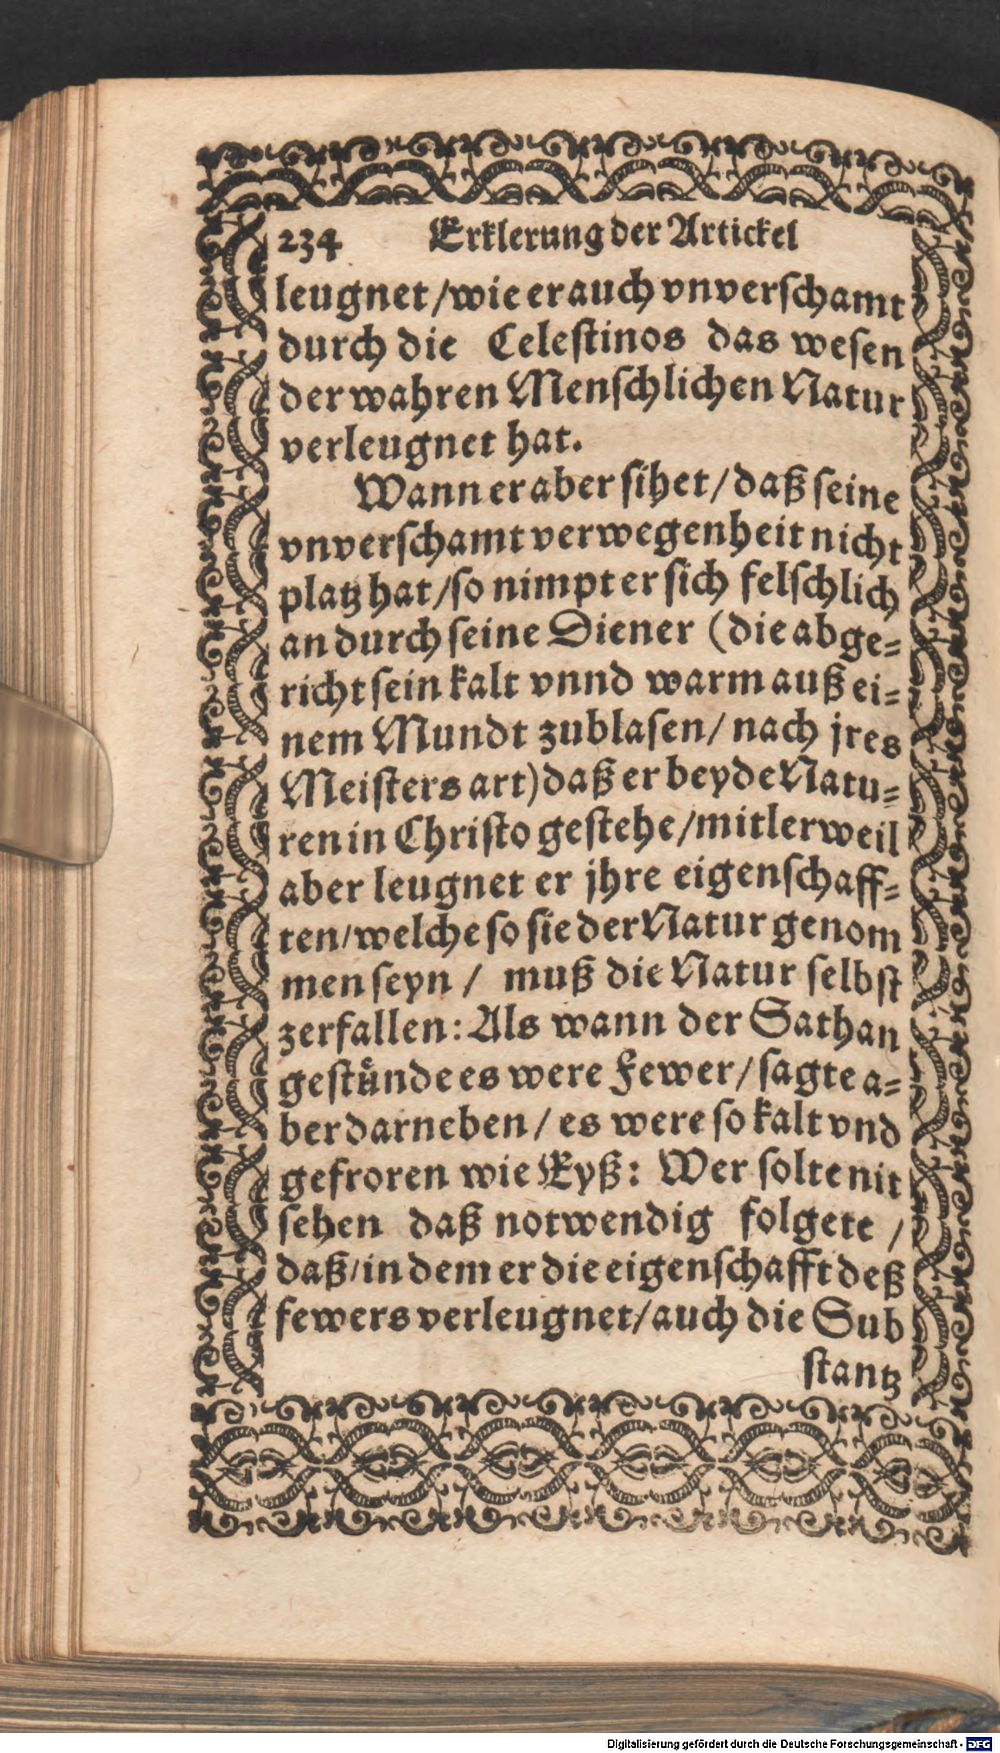 234 Erklerung der Artickel
leugnet/wie er auch vnverschamt
durch die Celestinos das wesen
der wahren Menschlichen Natur
verleugnet hat.
Wann er aber sihet/daß seine
vnverschamt verwegenheit nicht
platz hat/so nimpt er sich felschlich
an durch seine Diener (die abge=
richt sein kalt vnnd warm auß ei=
nem Mundt zublasen/ nach jres
Meisters art) daß er beyde Natu=
ren in Christo gestehe/mitlerweil
aber leugnet er jhre eigenschaff=
ten/welche so sie der Natur genom
men seyn / muß die Natur selbst
zerfallen: Als wann der Sathan
gestuͤnde es were Fewer/sagte a=
ber darneben/es were so kalt vnd
gefroren wie Eyß: Wer solte nit
sehen daß notwendig folgete /
daß/in dem er die eigenschafft deß
fewers verleugnet/auch die Sub
stantz
Digitalisierung gefördert durch die Deutsche Forschungsgemeinschaft - DFG